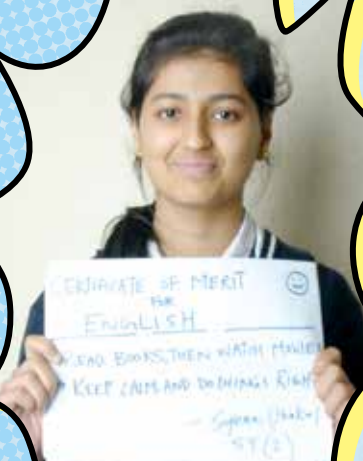 CERTIFICATE OF MERIT
FOR
ENGLISH
READ BOOKS, THEN WATCH MOVIES
KEEP CALM AND DO THINGS RIGHT